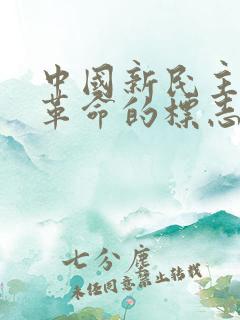 中國新民主
革命的標志
七分塵
未经同意禁止转载